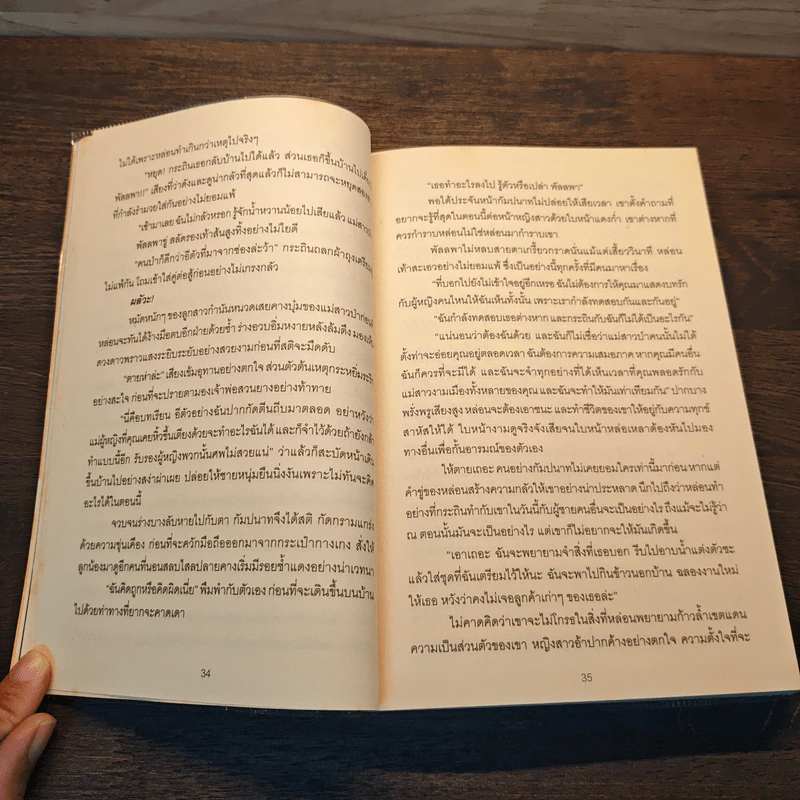 ไม่ได้เพราะหล่อนทำเกินกว่าเหตุไปจริงๆ
"หยุด! กระถินเธอกลับบ้านไปได้แล้ว ส่วนเธอก็ขึ้นบ้านไปเดี๋ยว
พัลลพา!!" เสียงที่ว่าดังและดูน่ากลัวที่สุดแล้วก็ไม่สามารถจะหยุดสอง
ที่กำลังรำมวยใส่กันอย่างไม่ยอมแพ้
"เข้ามาเลย ฉันไม่กลัวหรอก รู้จักน้ำหวานน้อยไปเสียแล้ว แม่สาว
พัลลพาขู่ สลัดรองเท้าส้นสูงทิ้งอย่างไม่ไยดี
"คนป่าก็ดีกว่าอีตัวที่มาจากซ่องล่ะว้า" กระถินถลกผ้าถุงเตรียม
ไม่แพ้กัน โถมเข้าใส่คู่ต่อสู้ก่อนอย่างไม่เกรงกลัว
ผลัวะ!
หมัดหนักๆ ของลูกสาวกำนันหนวดเสยคางบุ๋มของแม่สาวป่าก่อน
หล่อนจะทันได้ง้างมือตบอีกฝ่ายด้วยซ้ำ ร่างอวบอิ่มหงายหลังล้มตึง มองเห็น
ดวงดาวพราวแสงระยิบระยับอย่างสวยงามก่อนที่สติจะมืดดับ
"ตายห่าล่ะ" เสียงเข้มอุทานอย่างตกใจ ส่วนตัวต้นเหตุกระหยิ่มระรื่น
อย่างสะใจ ก่อนที่จะปรายตามองเจ้าพ่อสวนยางอย่างท้าทาย
"นี่คือบทเรียน อีตัวอย่างฉันปากกัดตีนถีบมาตลอด อย่าหวังว่า
แม่ผู้หญิงที่คุณเคยหิ้วขึ้นเตียงด้วยจะทำอะไรฉันได้ และก็จำไว้ด้วยถ้ายังกล้า
ทำแบบนี้อีก รับรองผู้หญิงพวกนั้นศพไม่สวยแน่" ว่าแล้วก็สะบัดหน้าเดิน
ขึ้นบ้านไปอย่างสง่าผ่าเผย ปล่อยให้ชายหนุ่มยืนนิ่งงันเพราะไม่ทันจะคิด
อะไรได้ในตอนนี้
จวบจนร่างบางลับหายไปกับตา กัมปนาทจึงได้สติ กัดกรามแกร่ง
ด้วยความขุ่นเคือง ก่อนที่จะควักมือถือออกมาจากกระเป๋ากางเกง สั่งให้
ลูกน้องมาดูอีกคนที่นอนสลบไสลปลายคางเริ่มมีรอยช้ำแดงอย่างน่าเวทนา
"ฉันคิดถูกหรือคิดผิดเนี่ย" พึมพำกับตัวเอง ก่อนที่จะเดินขึ้นบนบ้าน
ไปด้วยท่าทางที่ยากจะคาดเดา
34
"เธอทำอะไรลงไป รู้ตัวหรือเปล่า พัลลพา"
พอได้ประจันหน้ากัมปนาทไม่ปล่อยให้เสียเวลา เขาตั้งคำถามที่
อยากจะรู้ที่สุดในตอนนี้ต่อหน้าหญิงสาวด้วยใบหน้าแดงก่ำ เขาต่างหากที่
ควรกำราบหล่อนไม่ใช่หล่อนมากำราบเขา
พัลลพาไม่หลบสายตาเกรี้ยวกราดนั่นแม้แต่เสี้ยววินาที หล่อน
เท้าสะเอวอย่างไม่ยอมแพ้ ซึ่งเป็นอย่างนี้ทุกครั้งที่มีคนมาหาเรื่อง
"ที่บอกไปยังไม่เข้าใจอยู่อีกเหรอ ฉันไม่ต้องการให้คุณมาแสดงบทรัก
กับผู้หญิงคนไหนให้ฉันเห็นทั้งนั้น เพราะเรากำลังทดสอบกันและกันอยู่"
"ฉันกำลังทดสอบเธอต่างหาก และกระถินกับฉันก็ไม่ได้เป็นอะไรกัน"
"แน่นอนว่าต้องฉันด้วย และฉันก็ไม่เชื่อว่าแม่สาวป่าคนนั้นไม่ได้
ตั้งท่าจะอ่อยคุณอยู่ตลอดเวลา ฉันต้องการความเสมอภาค หากคุณมีคนอื่น
ฉันก็ควรที่จะมีได้ และฉันจะจำทุกอย่างที่ได้เห็นเวลาที่คุณพลอดรักกับ
แม่สาวงามเมืองทั้งหลายของคุณ และฉันจะทำให้มันเท่าเทียมกัน" ปากบาง
พรั่งพรูเสียงสูง หล่อนจะต้องเอาชนะ และทำชีวิตของเขาให้อยู่กับความทุกข์
สาหัสให้ได้ ใบหน้างามดูจริงจังเสียจนใบหน้าหล่อเหลาต้องหันไปมอง
ทางอื่นเพื่อกั้นอารมณ์ของตัวเอง
ให้ตายเถอะ คนอย่างกัมปนาทไม่เคยยอมใครเท่านี้มาก่อน หากแต่
คำขู่ของหล่อนสร้างความกลัวให้เขาอย่างน่าประหลาด นึกไปถึงว่าหล่อนทำ
อย่างที่กระถินทำกับเขาในวันนี้กับผู้ชายคนอื่นจะเป็นอย่างไร ถึงแม้จะไม่รู้ว่า
ณ ตอนนั้นมันจะเป็นอย่างไร แต่เขาก็ไม่อยากจะให้มันเกิดขึ้น
"เอาเถอะ ฉันจะพยายามจำสิ่งที่เธอบอก รีบไปอาบน้ำแต่งตัวซะ
แล้วใส่ชุดที่ฉันเตรียมไว้ให้นะ ฉันจะพาไปกินข้าวนอกบ้าน ฉลองงานใหม่
ให้เธอ หวังว่าคงไม่เจอลูกค้าเก่าๆ ของเธอล่ะ"
ไม่คาดคิดว่าเขาจะไม่โกรธในสิ่งที่หล่อนพยายามก้าวล้ำเขตแดน
ความเป็นส่วนตัวของเขา หญิงสาวอ้าปากค้างอย่างตกใจ ความตั้งใจที่จะ
35